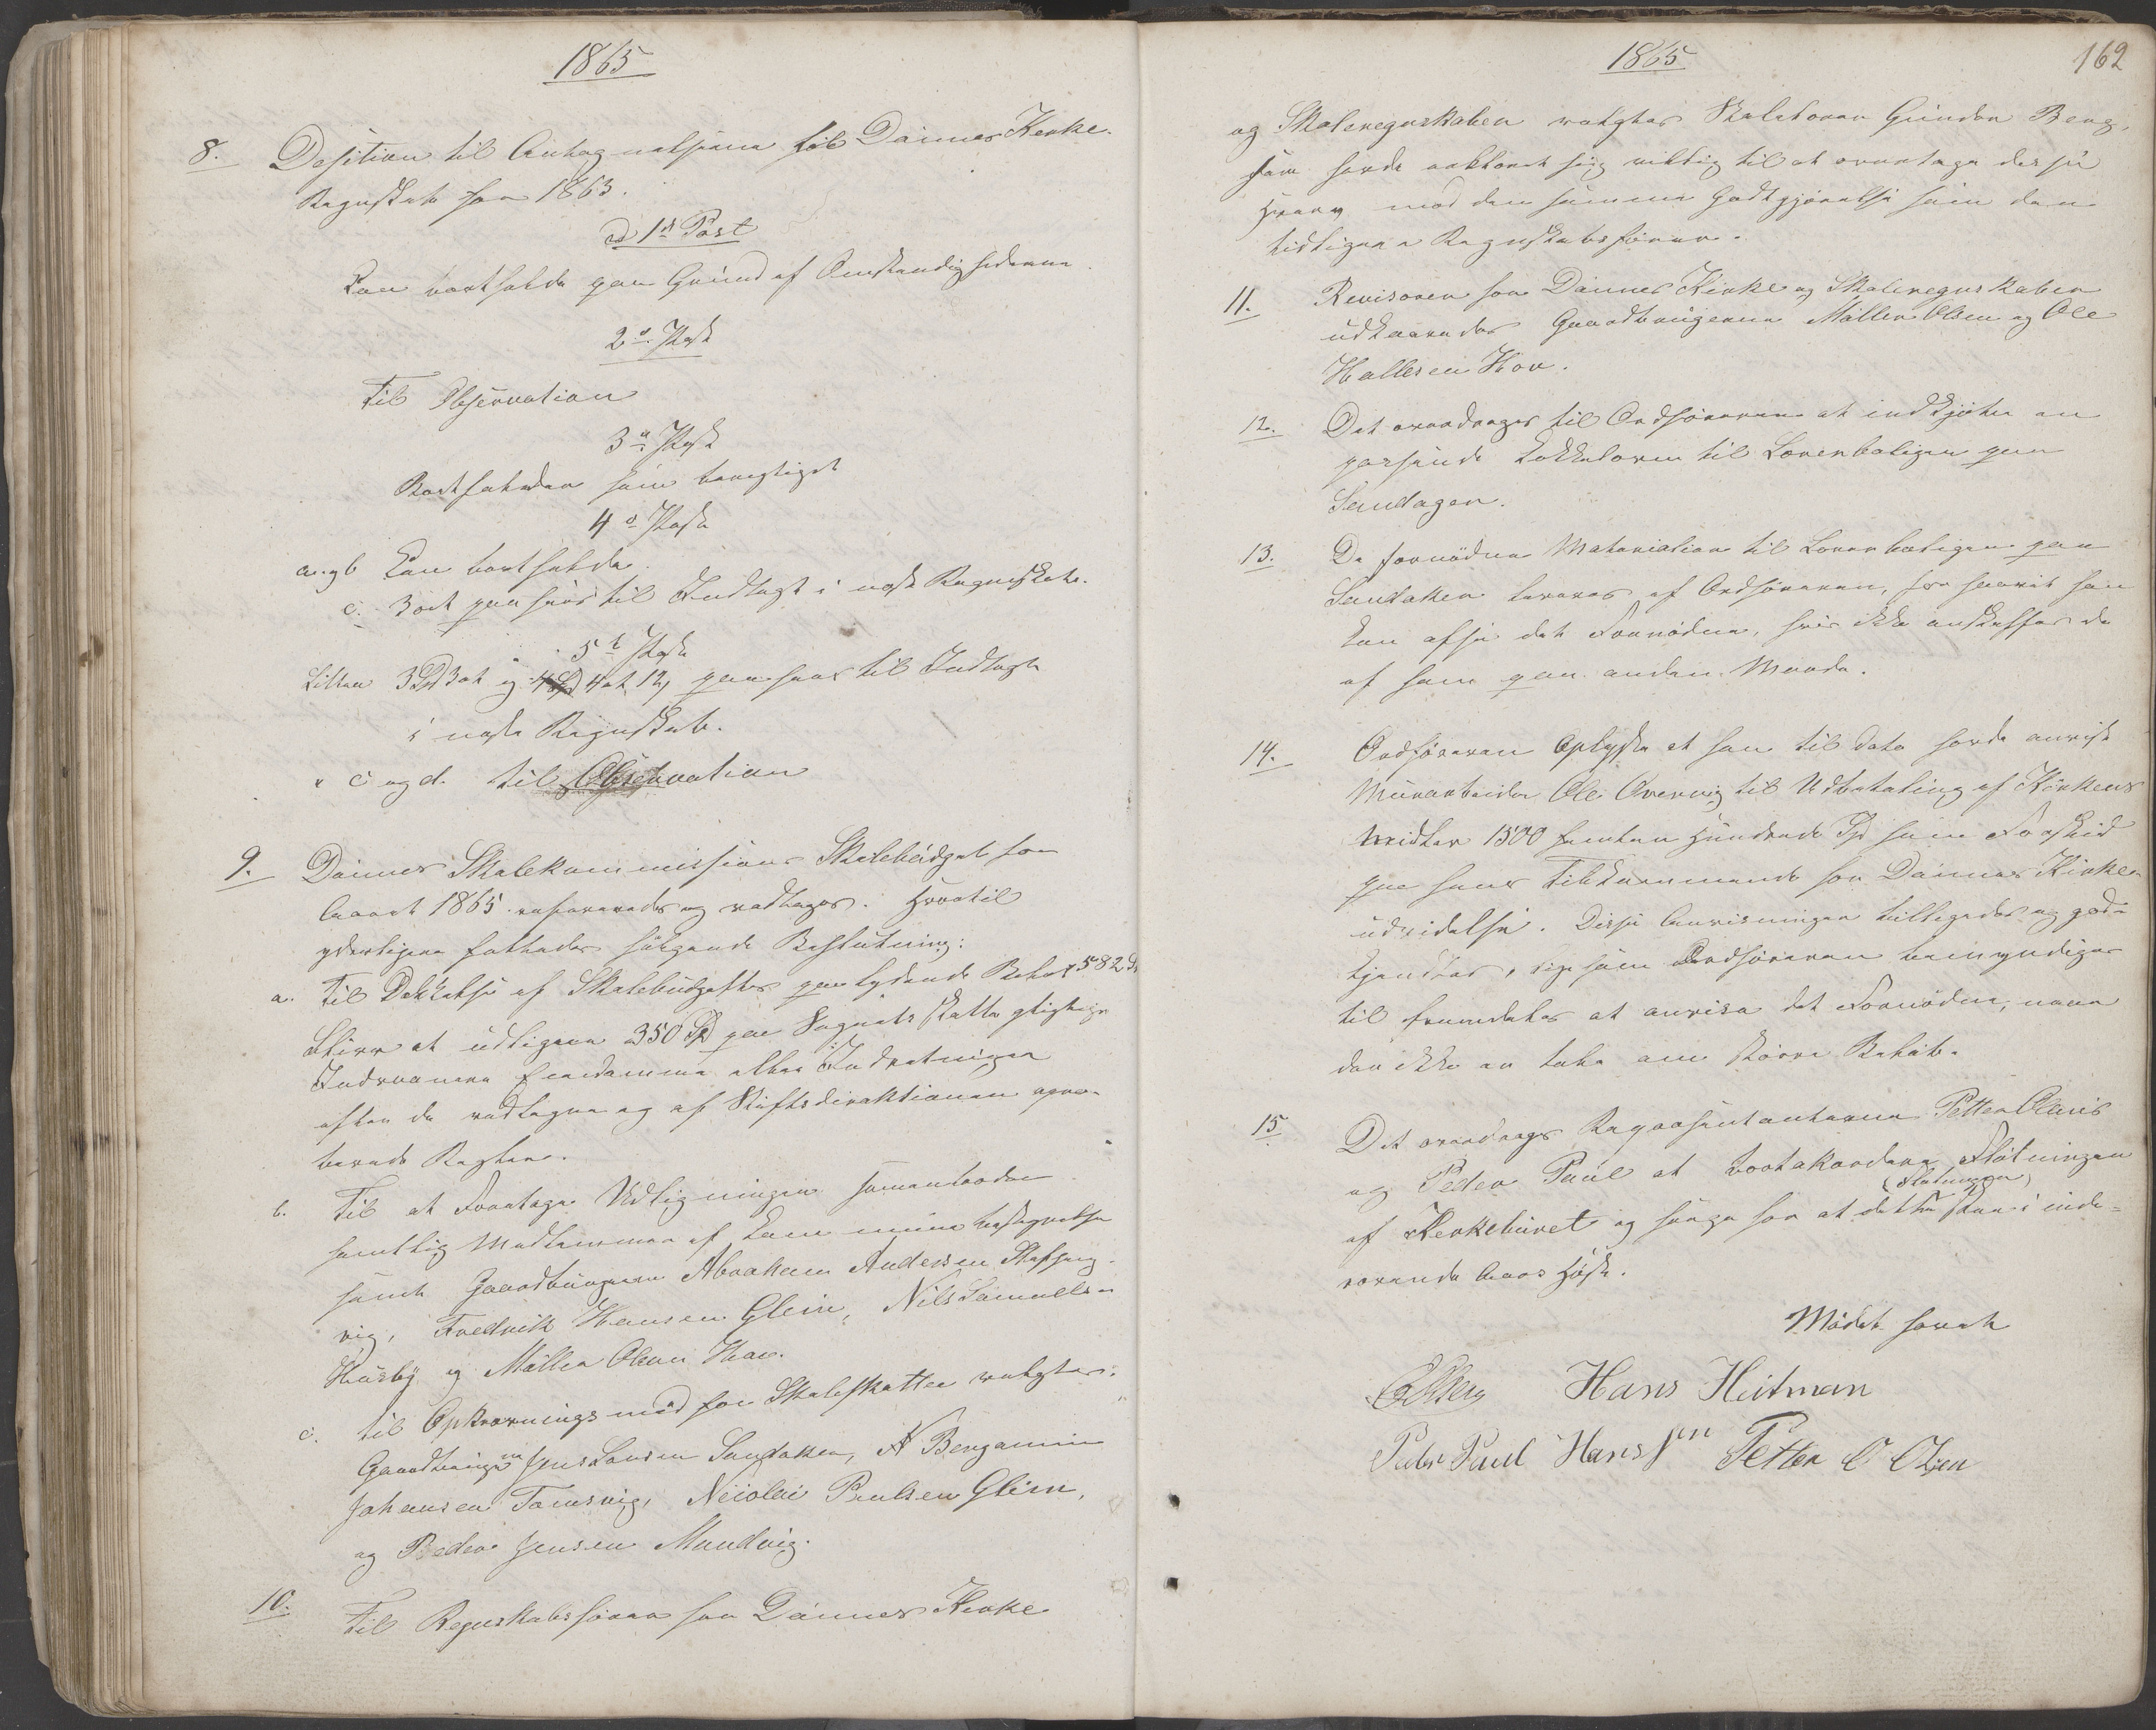 1865
8. Desition til Antegnelserne til Dønnes Kirke
Regnskab for 1863.
ad 1st Post
Kan bortfalde paa Grund af Omstændighederne.
2den Post
Til Observation
3die Post
Bortfalder som berigtiget
4de Post
a og b Kan bortfalde.
c. 3 ort paaføres til Indtægt i næste Regnskab.
5te Post
Littra 3 Spd 3 ort og 4 ort 12 s paaføres til Indtægt
i næste Regnskab.
" c og d. til Observation
9. Dønnes Skolekommissions Skolebudget for
Aaret 1865 refereredes og vedtages. Hvortil
yderligere fattedes følgende Beslutning:
a. Til Dækkelse af Skolebudgettets paalydende Beløb 582 Sp
bliver at udligne 350 Spd paa Sognets skattepligtige
Indvaanere Eiendomme eller Indretninger
efter de vedtagne og af Stiftsdirektionen appro-
berede Regler.
b. Til at Foretage Udligningen sammentræder
samtlig Medlemmer af Kommunebestyrelsen
samt Gaardbrugerne Abraham Andersen
vig, Fredrik Hansen Glein, Nils Samuelsen
Husby og Möller Olsen Hov.
c. til Opkrævningsmænd for Skoleskatten valgtes:
Gaardbrugerne Jens Larsen Sandaker, A Bengamin
Johansen Tømsvig, Nicolai Paulsen Glein,
og Peder Jensen Mundvig.
10. Til Regnskabsfører for Dønnes Kirke
1865
162
og Skoleregnskaben valgtes Skolelærer Gunder Berg,
som havde erklæret sig villig til at overtage disse
Hverv mod den samme Godtgjørelse som den
tidligere Regnskabsfører.
11. Revisorer for Dønnes Kirke og Skoleregnskaben
udkaaredes Gaardbrugerne Möller Olsen og Ole
Hallesen Hov.
12. Det overdrages til Ordføreren at indkjøbe en
passende Kakkelovn til Lærerboligen paa
Sandagen.
13. De fornødne Materialier til Lærerboligen paa
Sandaker leveres af Ordføreren, for saavidt han
kan afse det Fornødne, hvis ikke anskaffes de
af ham paa anden Maade.
14. Ordføreren Oplyste at han til Dato havde anvist
Murarbeider Ole Overvig til Udbetaling af Kirkens
Midler 1500 femten Hundrede Spd som Forskud
paa hans Tilkommende for Dønnes Kirkes
udvidelse. Disse Anvisninger billigedes og god-
kjendtes, ligesom Ordføreren bemyndiges
til fremdeles at anvise det Fornødne, naar
der ikke er tale om større Beløb.
15 Det overdrages Repræsentanterne Petter Olaus
og Peder Paul at bortakordere Flötningen
af Kirkeburet og sørge for at dette (Flötningen) sker i inde-
værende Aars Høst.
Mödet hævet
Hans Heitman
Peder Paul Hanssen Petter O Olsen